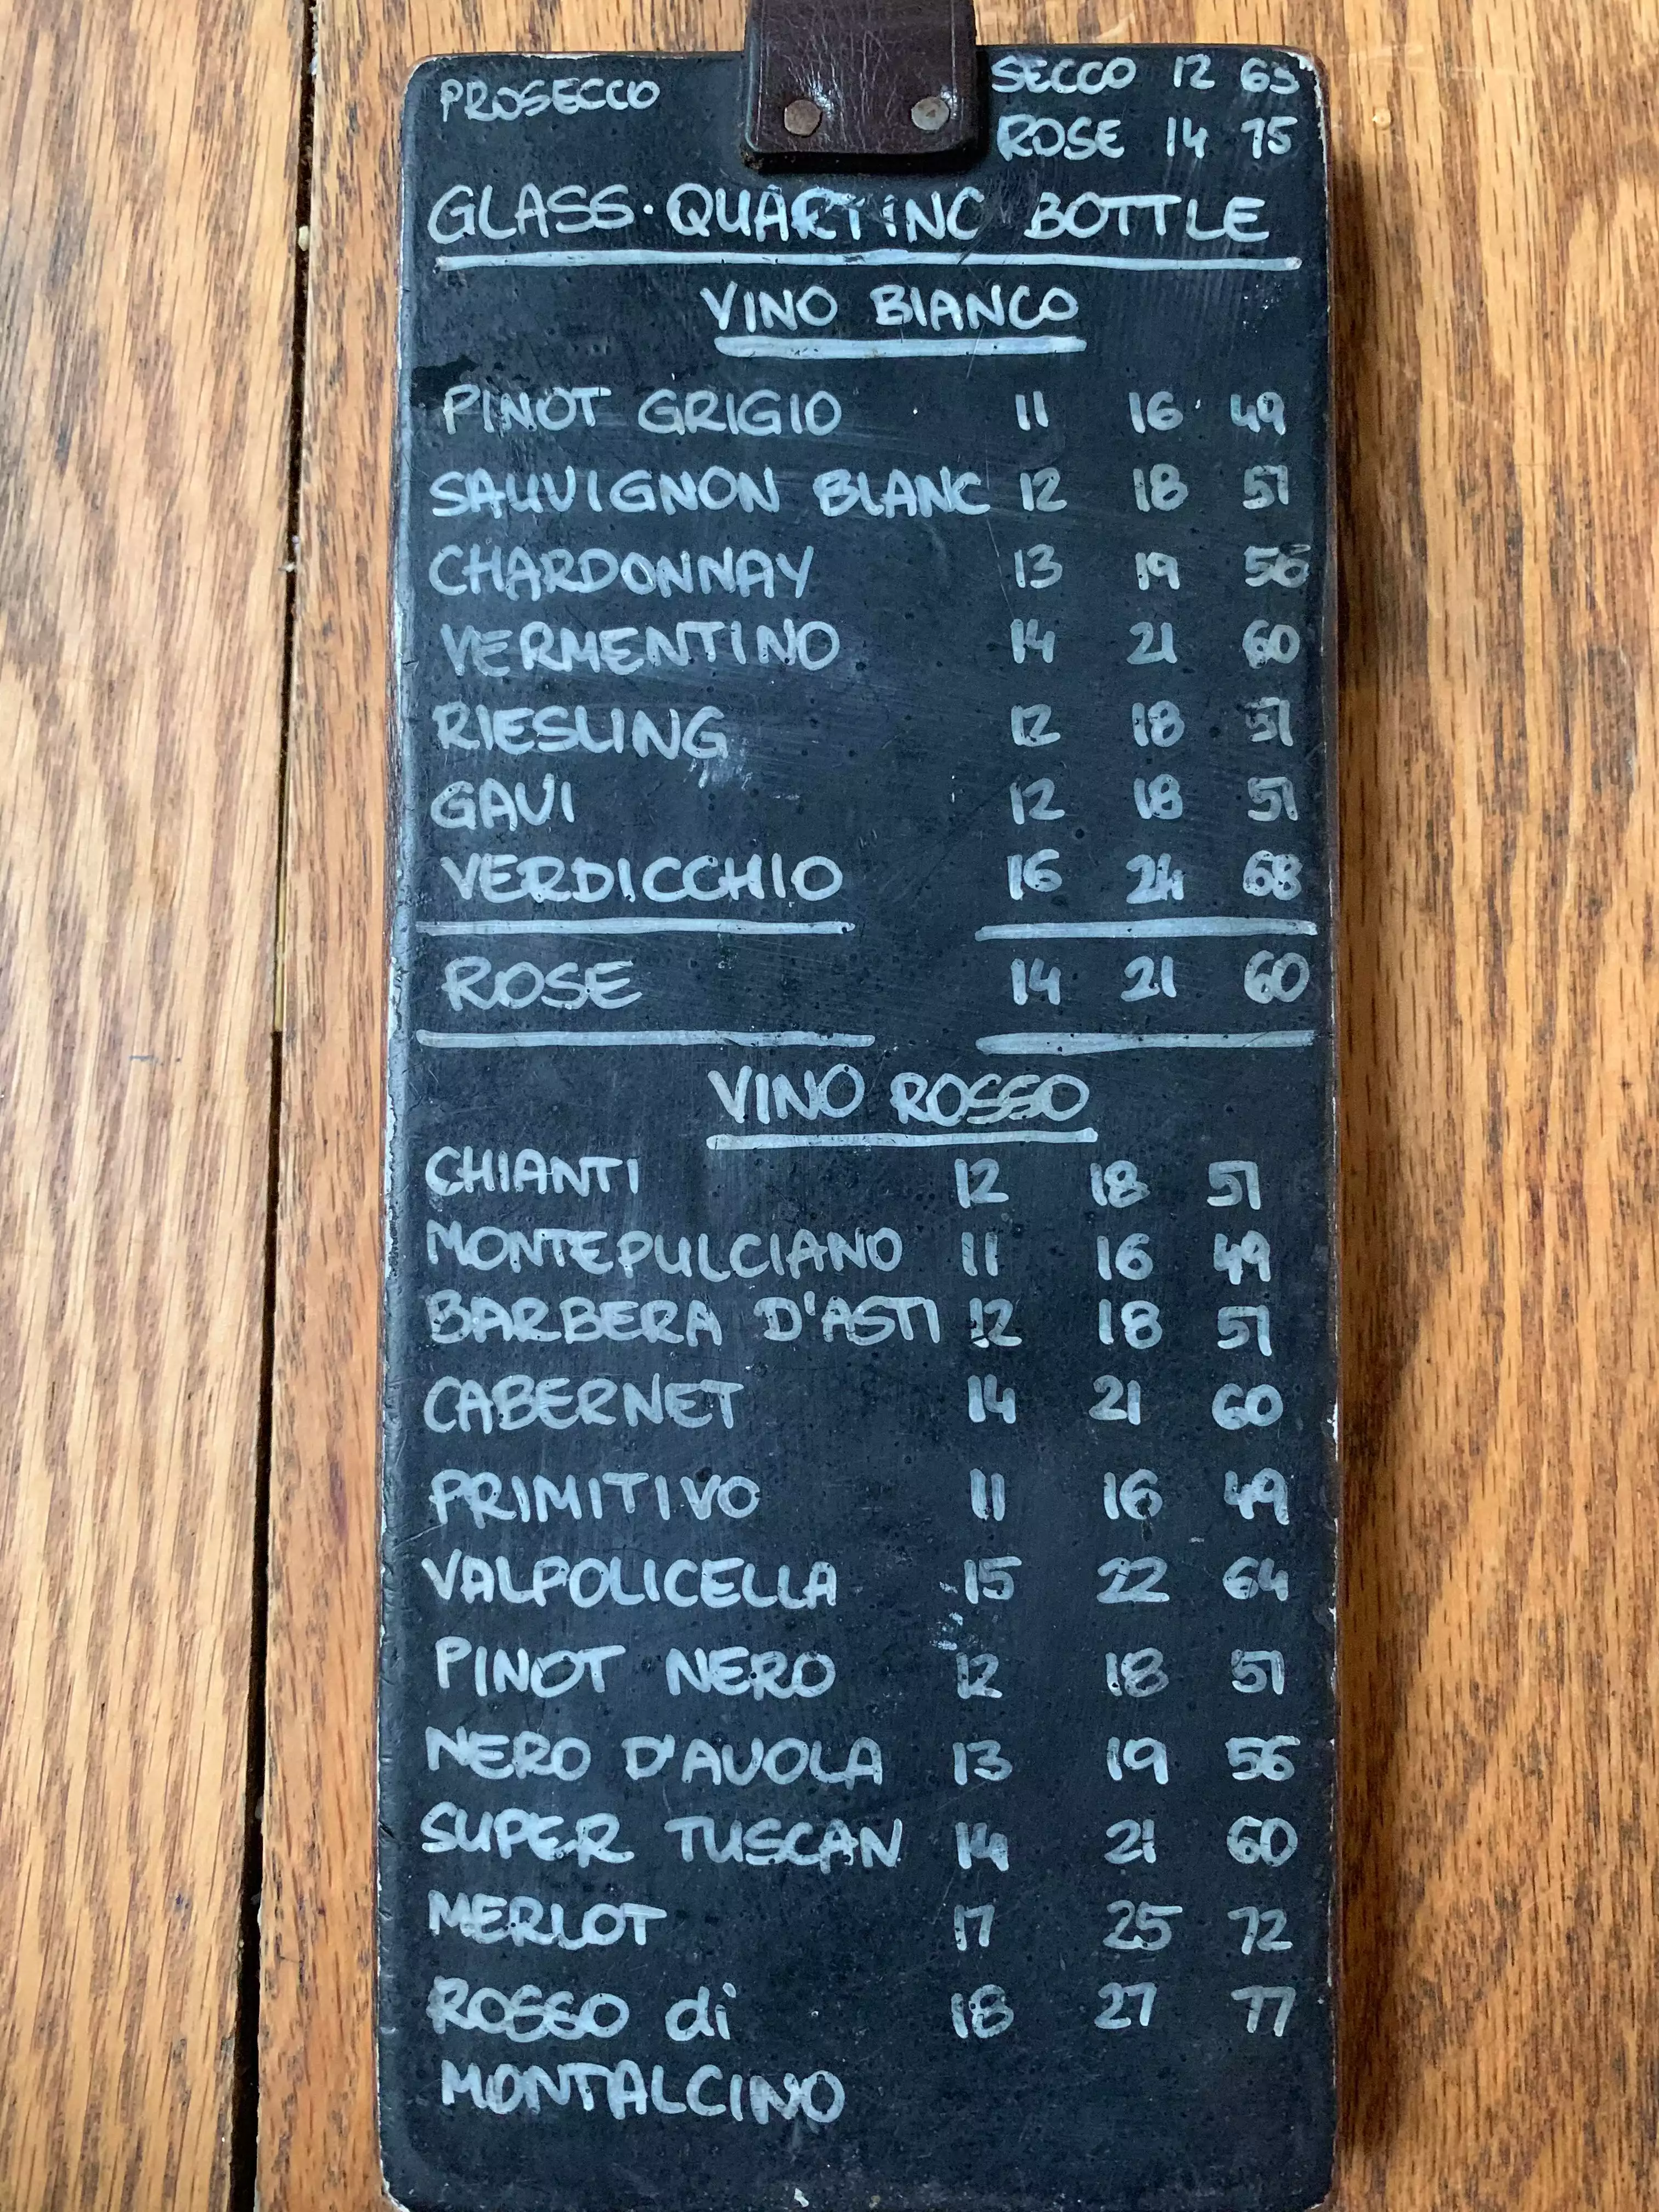 PROSECCO SECCO 12 63
ROSE 14 75
GLASS · QUARTINO BOTTLE
VINO BIANCO
PINOT GRIGIO 11 16 49
SAUVIGNON BLANC 12 18 51
CHARDONNAY 13 19 56
VERMENTINO 14 21 60
RIESLING 12 18 51
GAVI 12 18 51
VERDICCHIO 16 24 68
ROSE 14 21 60
VINO ROSSO
CHIANTI 12 18 51
MONTEPULCIANO 11 16 49
BARBERA D'ASTI 12 18 51
CABERNET 14 21 60
PRIMITIVO 11 16 49
VALPOLICELLA 15 22 64
PINOT NERO 12 18 51
NERO D'AVOLA 13 19 56
SUPER TUSCAN 14 21 60
MERLOT 17 25 72
ROSSO di 18 27 77
MONTALCINO